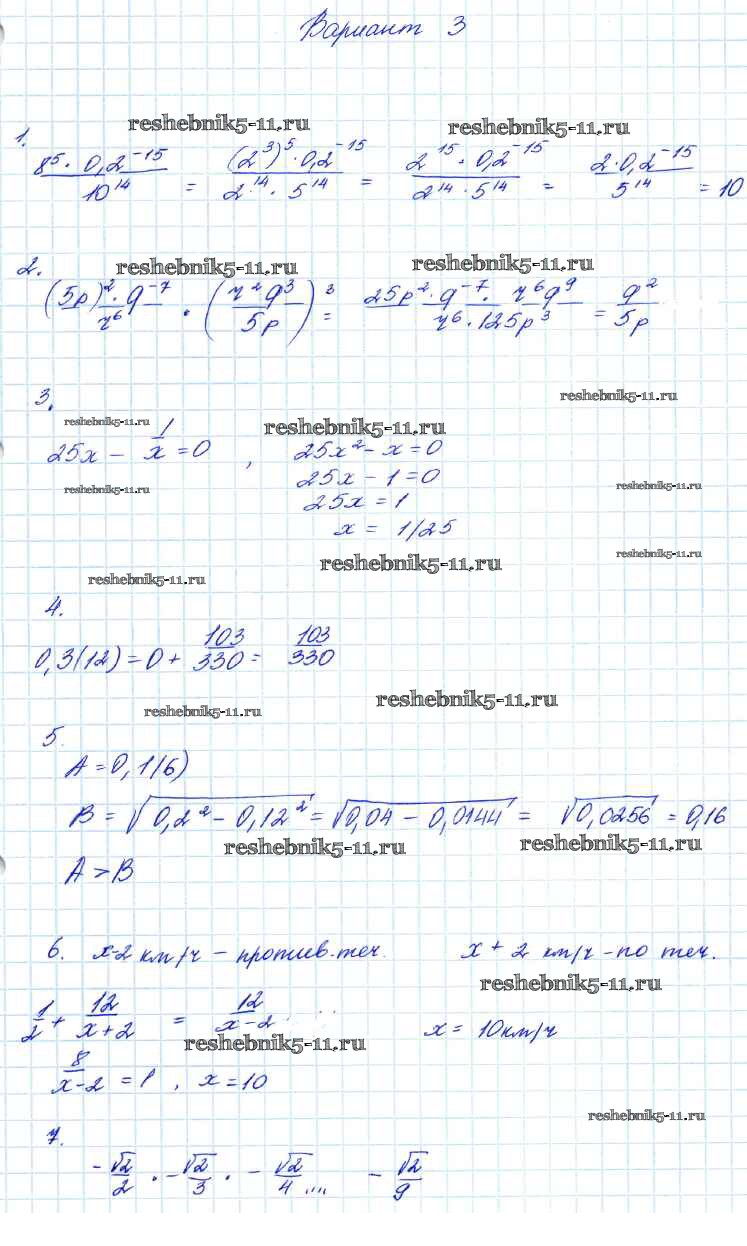 Вариант 3
1.
reshebnik5-11.ru reshebnik5-11.ru
8⁵ · 0,2⁻¹⁵ / 10¹⁴ = (2³)⁵ · 0,2⁻¹⁵ / 2¹⁴ · 5¹⁴ = 2¹⁵ · 0,2⁻¹⁵ / 2¹⁴ · 5¹⁴ = 2 · 0,2⁻¹⁵ / 5¹⁴ = 10
2.
reshebnik5-11.ru reshebnik5-11.ru
(5p)² · q⁻⁷ / r⁶ · (r²q³ / 5p)³ = 25p² · q⁻⁷ · r⁶q⁹ / r⁶ · 125p³ = q² / 5p
3.
reshebnik5-11.ru
reshebnik5-11.ru reshebnik5-11.ru
25x − 1/x = 0 , 25x² − x = 0
25x − 1 = 0
reshebnik5-11.ru reshebnik5-11.ru
25x = 1
x = 1/25
reshebnik5-11.ru reshebnik5-11.ru
reshebnik5-11.ru
4.
0,3(12) = 0 + 103/330 = 103/330
reshebnik5-11.ru reshebnik5-11.ru
5.
A = 0,1(6)
B = √(0,2² − 0,12²) = √(0,04 − 0,0144) = √0,0256 = 0,16
reshebnik5-11.ru reshebnik5-11.ru
A > B
6. x-2 км/ч − против. теч. x + 2 км/ч - по теч.
reshebnik5-11.ru
1/2 + 12/(x+2) = 12/(x−2) x = 10 км/ч
reshebnik5-11.ru
8/(x−2) = 1 , x = 10
reshebnik5-11.ru
7.
−√2/2 · −√2/3 · −√2/4 .... −√2/9